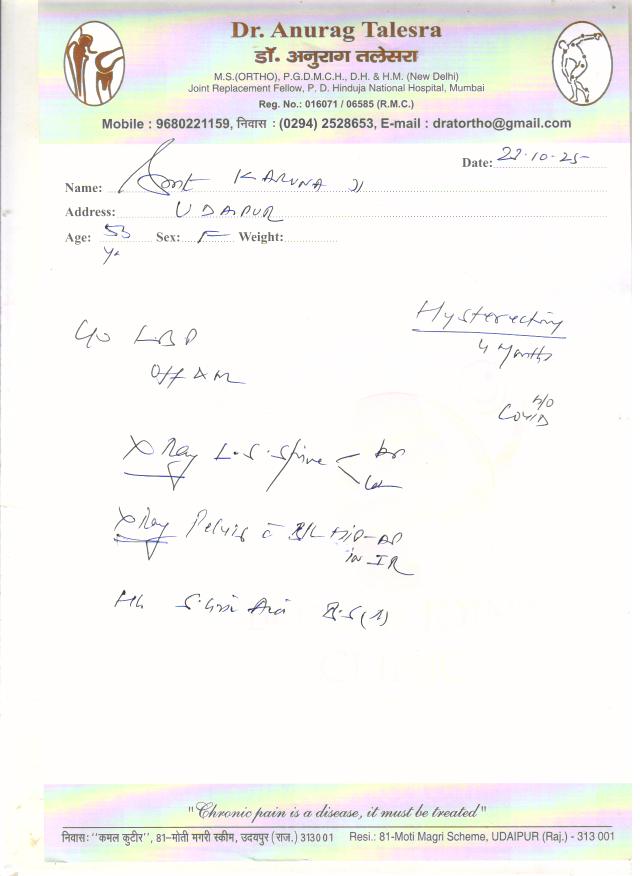 Dr. Anurag Talesra
डॉ. अनुराग तलेसरा
M.S.(ORTHO), P.G.D.M.C.H., D.H. & H.M. (New Delhi)
Joint Replacement Fellow, P. D. Hinduja National Hospital, Mumbai
Reg. No.: 016071 / 06585 (R.M.C.)
Mobile : 9680221159, निवास : (0294) 2528653, E-mail : dratortho@gmail.com
Date: -10-25
Name: Smt KARUNA JI
Address: UDAIPUR
Age: 53 Sex: F Weight:
yr
Hysterectomy
4 Months
C/O LBP
Off & On
H/O
Covid
X Ray L.S. Spine < AP
Lat
X Ray Pelvis c̄ B/L HIP-AP
in IR
Hb S. Uric Acid B.S(R)
"Chronic pain is a disease, it must be treated"
निवास: "कमल कुटीर", 81-मोती मगरी स्कीम, उदयपुर (राज.) 313001 Resi.: 81-Moti Magri Scheme, UDAIPUR (Raj.) - 313 001